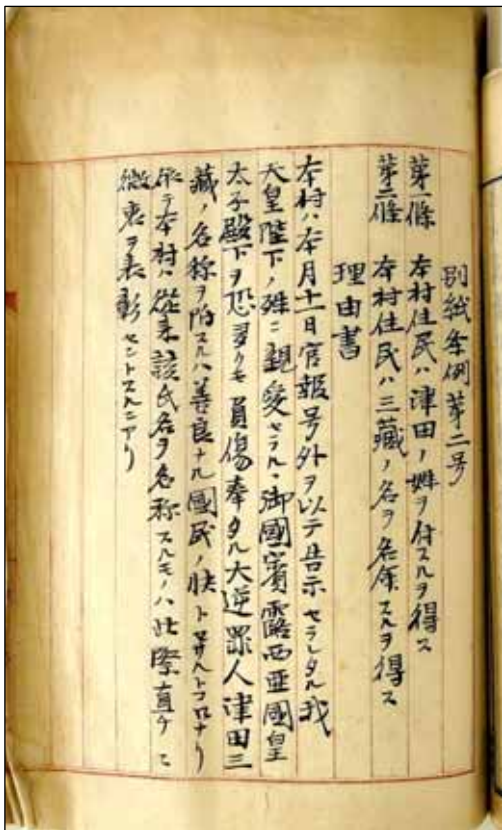 別紙条例第二号
第一條 本村住民ハ津田ノ姓ヲ付スルヲ得ス
第二條 本村住民ハ三藏ノ名ヲ名称スルヲ得ス
理由書
本村ハ本月十一日官報号外ヲ以テ告示セラレタル我
天皇陛下ノ殊ニ親愛セラルヽ御國賓露西亜國皇
太子殿下ヲ恐多クモ負傷奉タル大逆罪人津田三
藏ノ名称ヲ附スルハ善良ナル國民ノ快トセサルトコロナリ
依テ本村ハ従来該氏名ヲ名称スルモノハ此際直チニ
微衷ヲ表彰セントスルニアリ